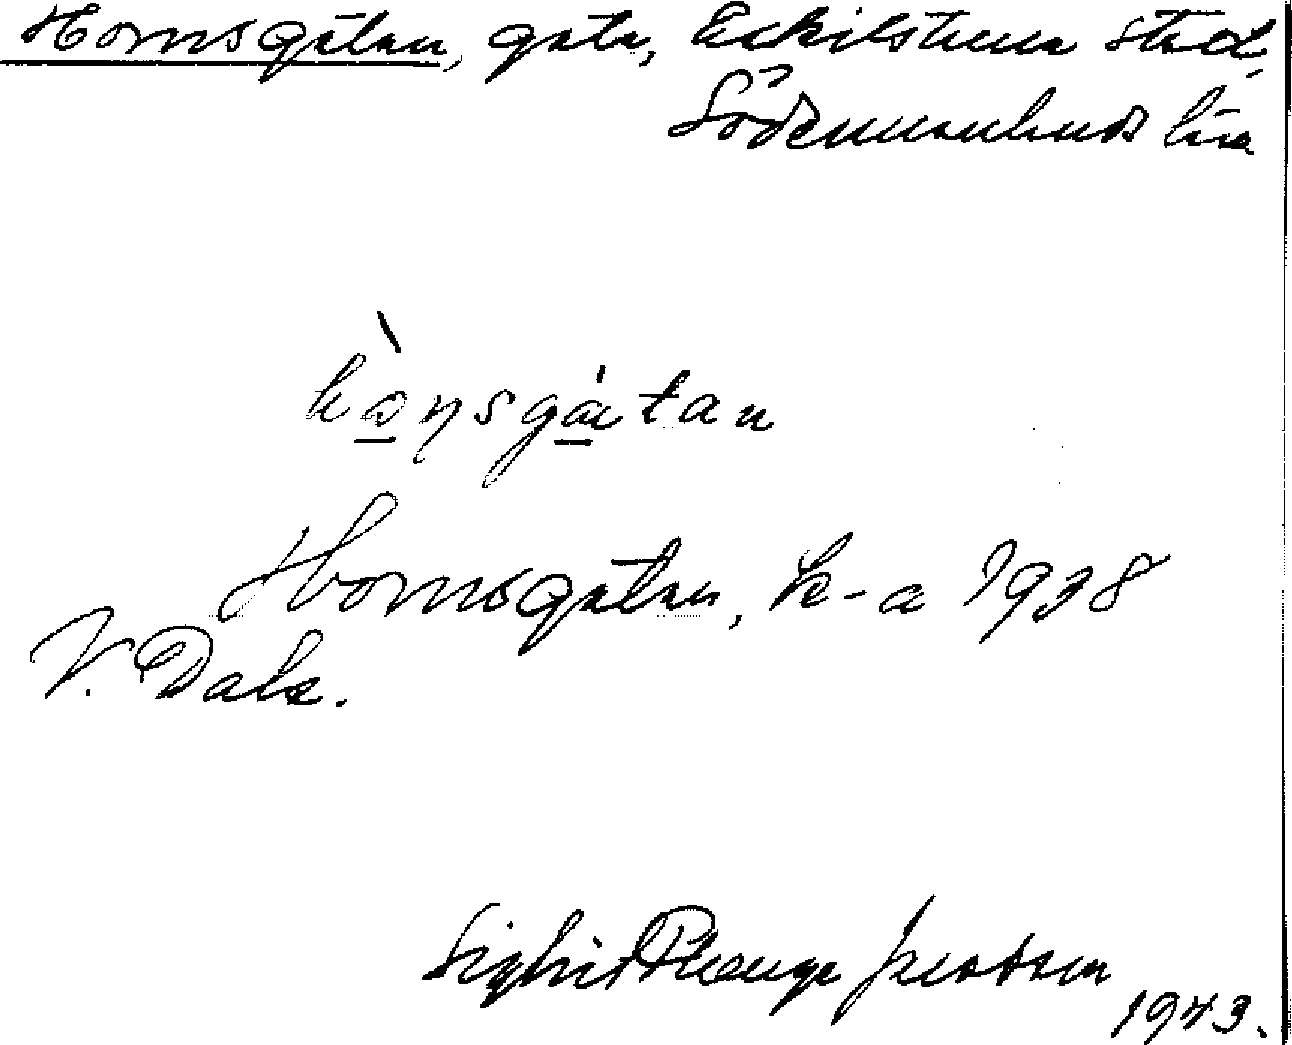 Hornsgatan, gata, Eskilstuna stad,
Södermanlands län
hɔ̀ṇsgátan
Hornsgatan, k-a 1938
V. Dala.
Sigfrid Plange Jacobson
1943.